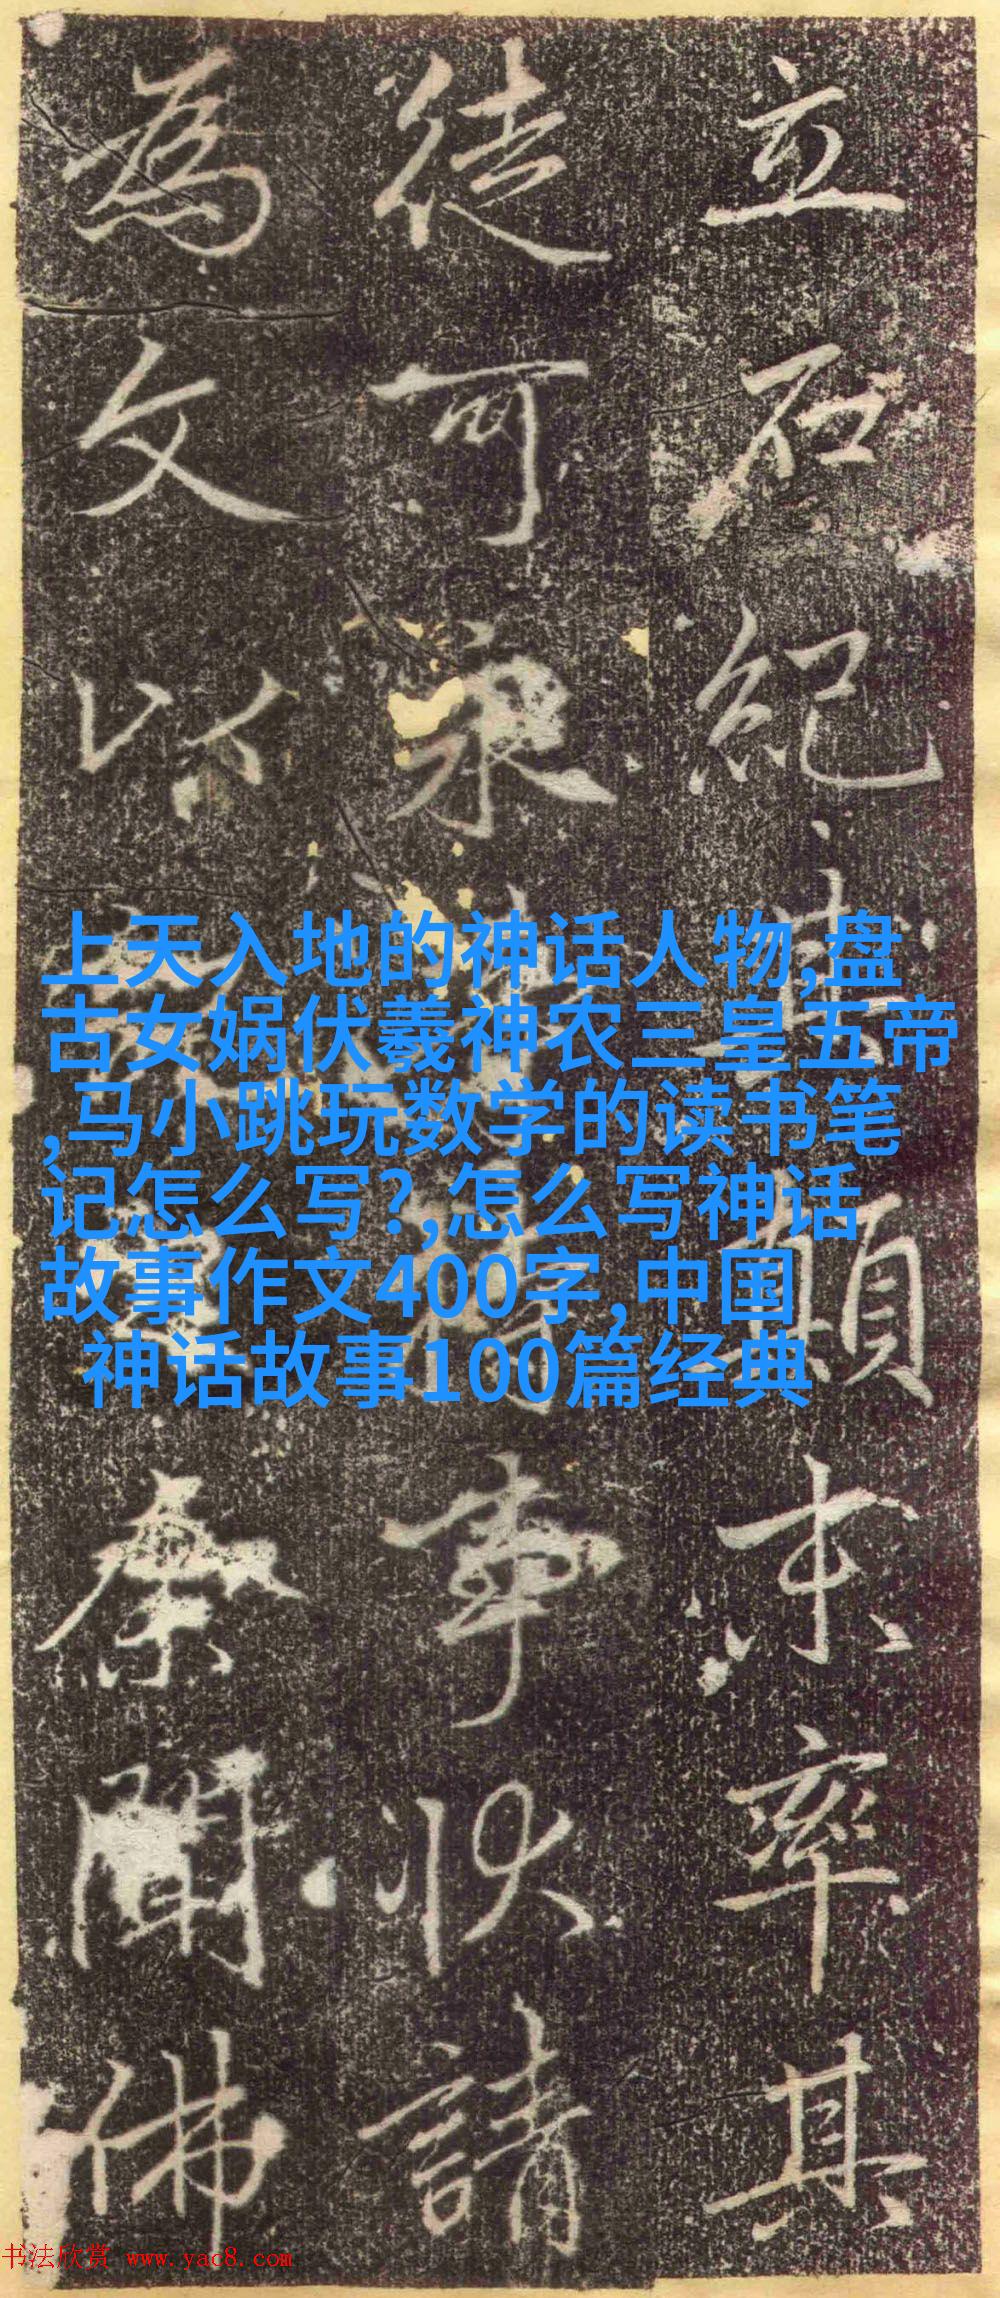 立石紀其顛末率其
徒可持事狀請
為文以余聞佛
上天入地的神话人物,盘
古女娲伏羲神农三皇五帝
,马小跳玩数学的读书笔
记怎么写?,怎么写神话
故事作文400字,中国
神话故事100篇经典
书法欣赏 www.yac8.com